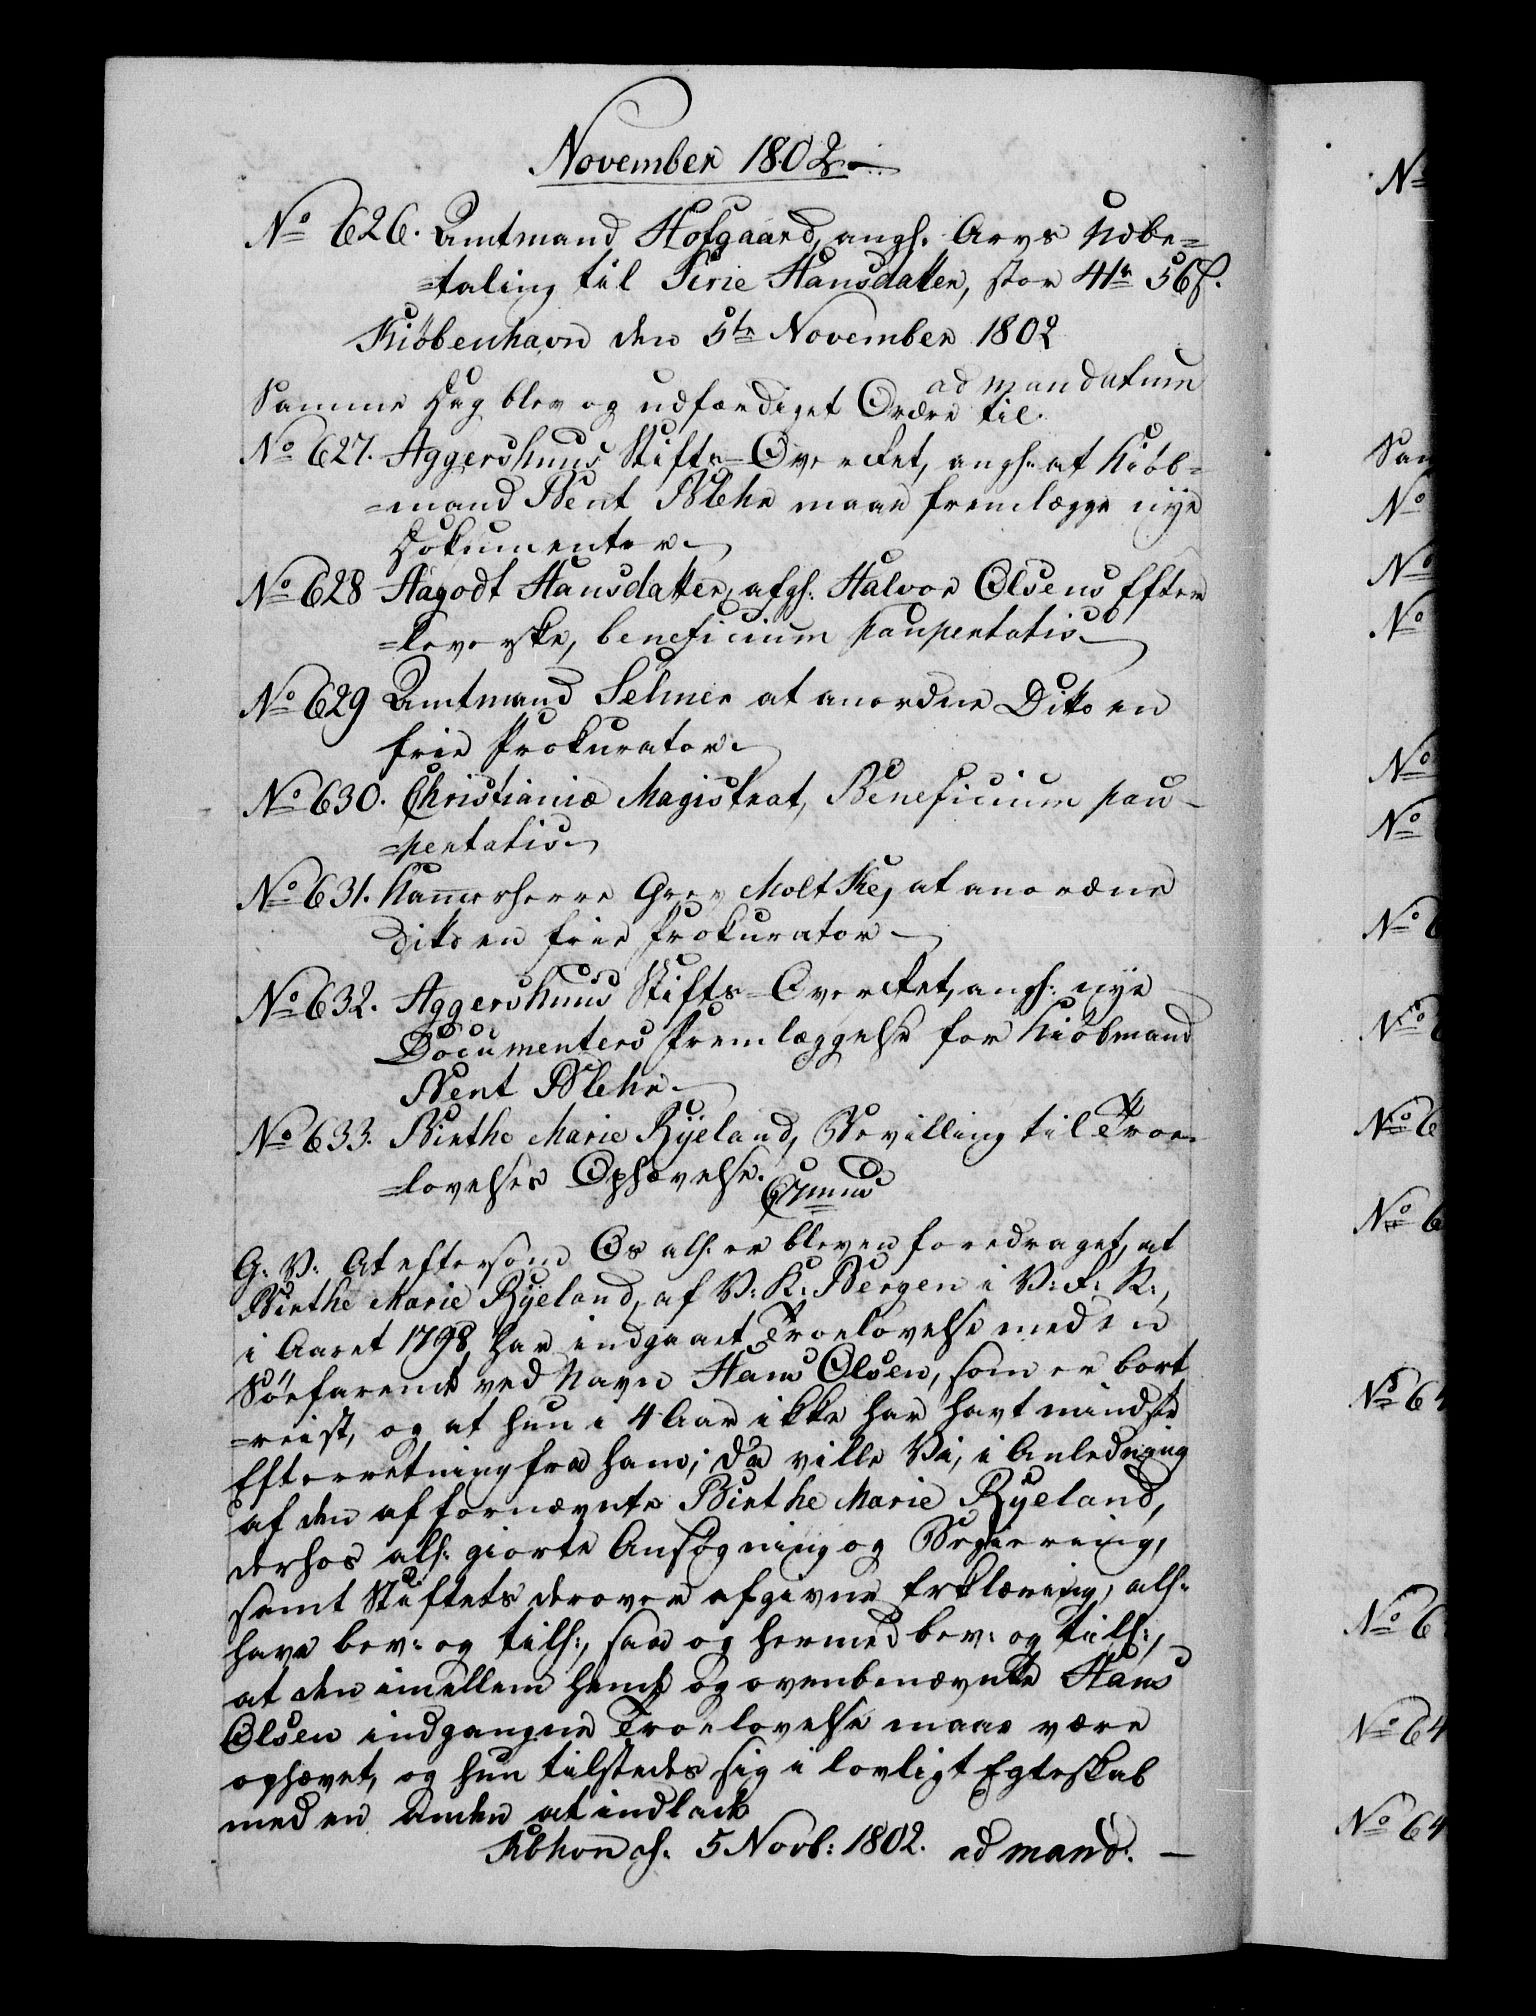 November 1802.
No 626. Amtmand Hofgaard, angh. Arvs Udbe=
=taling til Sirie Hansdatter, stor 41r 56 s.
Kiöbenhavn den 5te November 1802
ad mandatum
Samme Dag blev og udfærdiget Ordre til.
No 627. Aggershuus Stifts-Overret, angh. at Kiöb=
=mand Bent Blehr maae fremlægge nye
Dokumenter
No 628 Aagodt Hansdatter, afgh. Halvor Olsens Efter
=leverske, beneficium paupertatis
No 629 Amtmand Selmer at anordne Dito en
frie Prokurator
No 630. Christianiæ Magistrat, Beneficium pau-
=pertatis
No 631. Kammerherre Grev Moltke, at anordne
dito en frie Prokurator
No 632. Aggershuus Stifts-Overret, angh. nye
Documenters Fremlæggelse for Kiöbmand
Bent Blehr
No 633. Birthe Marie Ryeland, Bevilling til Troe-
=lovelses Ophævelse.
G: V: At eftersom Os alh: er bleven foredraget, at
Birthe Marie Ryeland, af V: K: Bergen i V: K: R:,
i Aaret 1798 har indgaaet Troelovelse med en
Söefarende ved Navn Hans Olsen, som er bort
=reist, og at hun i 4 Aar ikke har havt mindste
Efterretning fra ham; da ville Vi, i Anledning
af den af fornævnte Birthe Marie Ryeland,
derhos alh: giorte Ansøgning og Begiering,
samt Stiftets derover afgivne Erklæring, alh:
have bev: og tilh:, saa og hermed bev: og tilh:,
at den imellem hende og ovenbenævnte Hans
Olsen indgangne Troelovelse maae være
ophævet, og hun tilstedes sig i lovligt Egteskab
med en anden at indlade
Kbhvn d. 5 Novb: 1802. ad mand. —
No
Sam
No
No
No
No
No
No 6
No 6
No 6
No 6
No 64
No 6
No 64
No 64